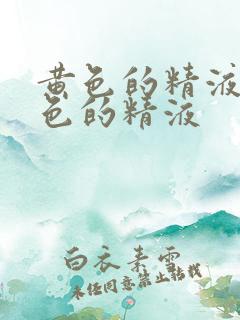 黄色的精液
色的精液
白衣素雪
未经同意禁止转载